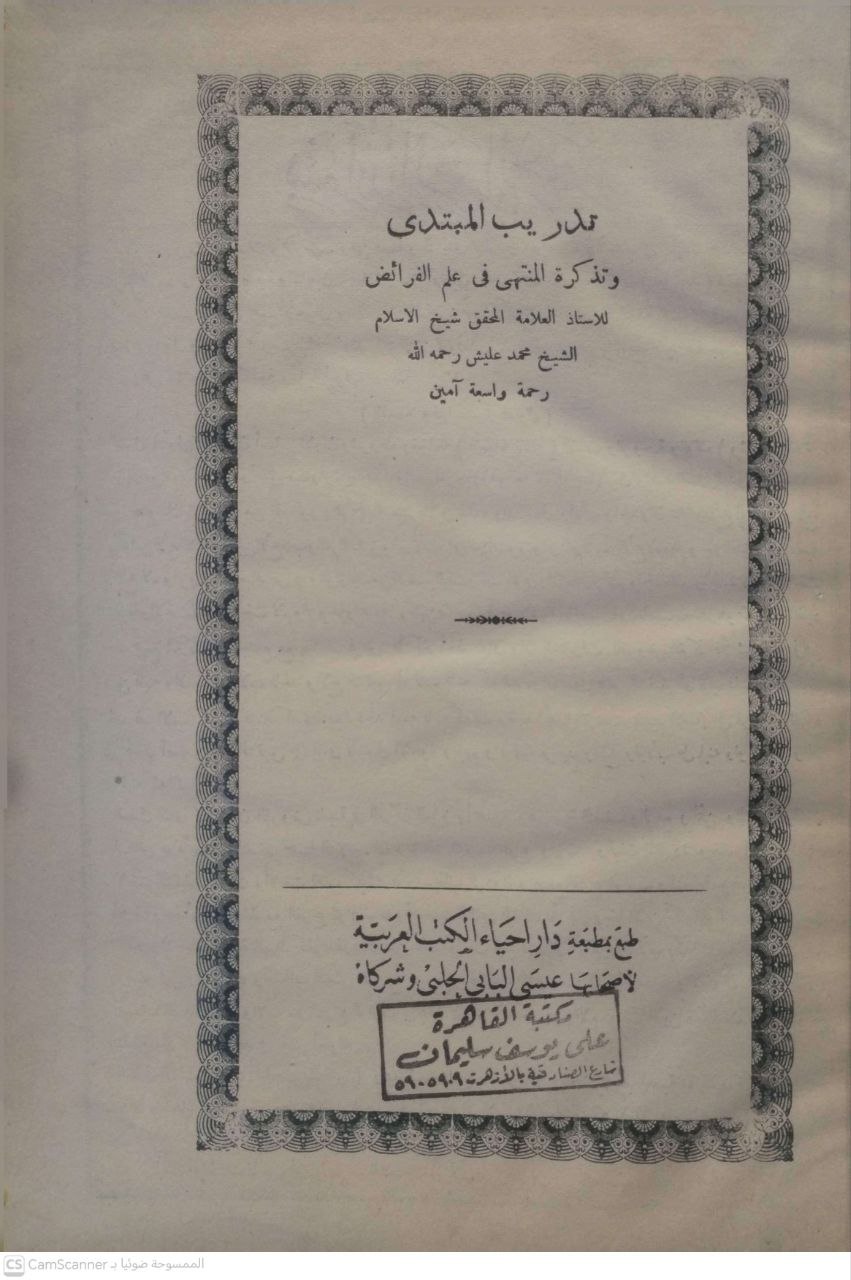 تدريب المبتدى
وتذكرة المنتهى فى علم الفرائض
للاستاذ العلامة المحقق شيخ الاسلام
الشيخ محمد عليش رحمه الله
رحمة واسعة آمين
طبع بمطبعة دار احياء الكتب العربية
لأصحابها عيسى البابى الحلبى وشركاه
مكتبة القاهرة
على يوسف سليمان
شارع الصنادقية بالأزهر ت ٥٩٠٥٩٠٩
CS CamScanner الممسوحة ضوئيا بـ